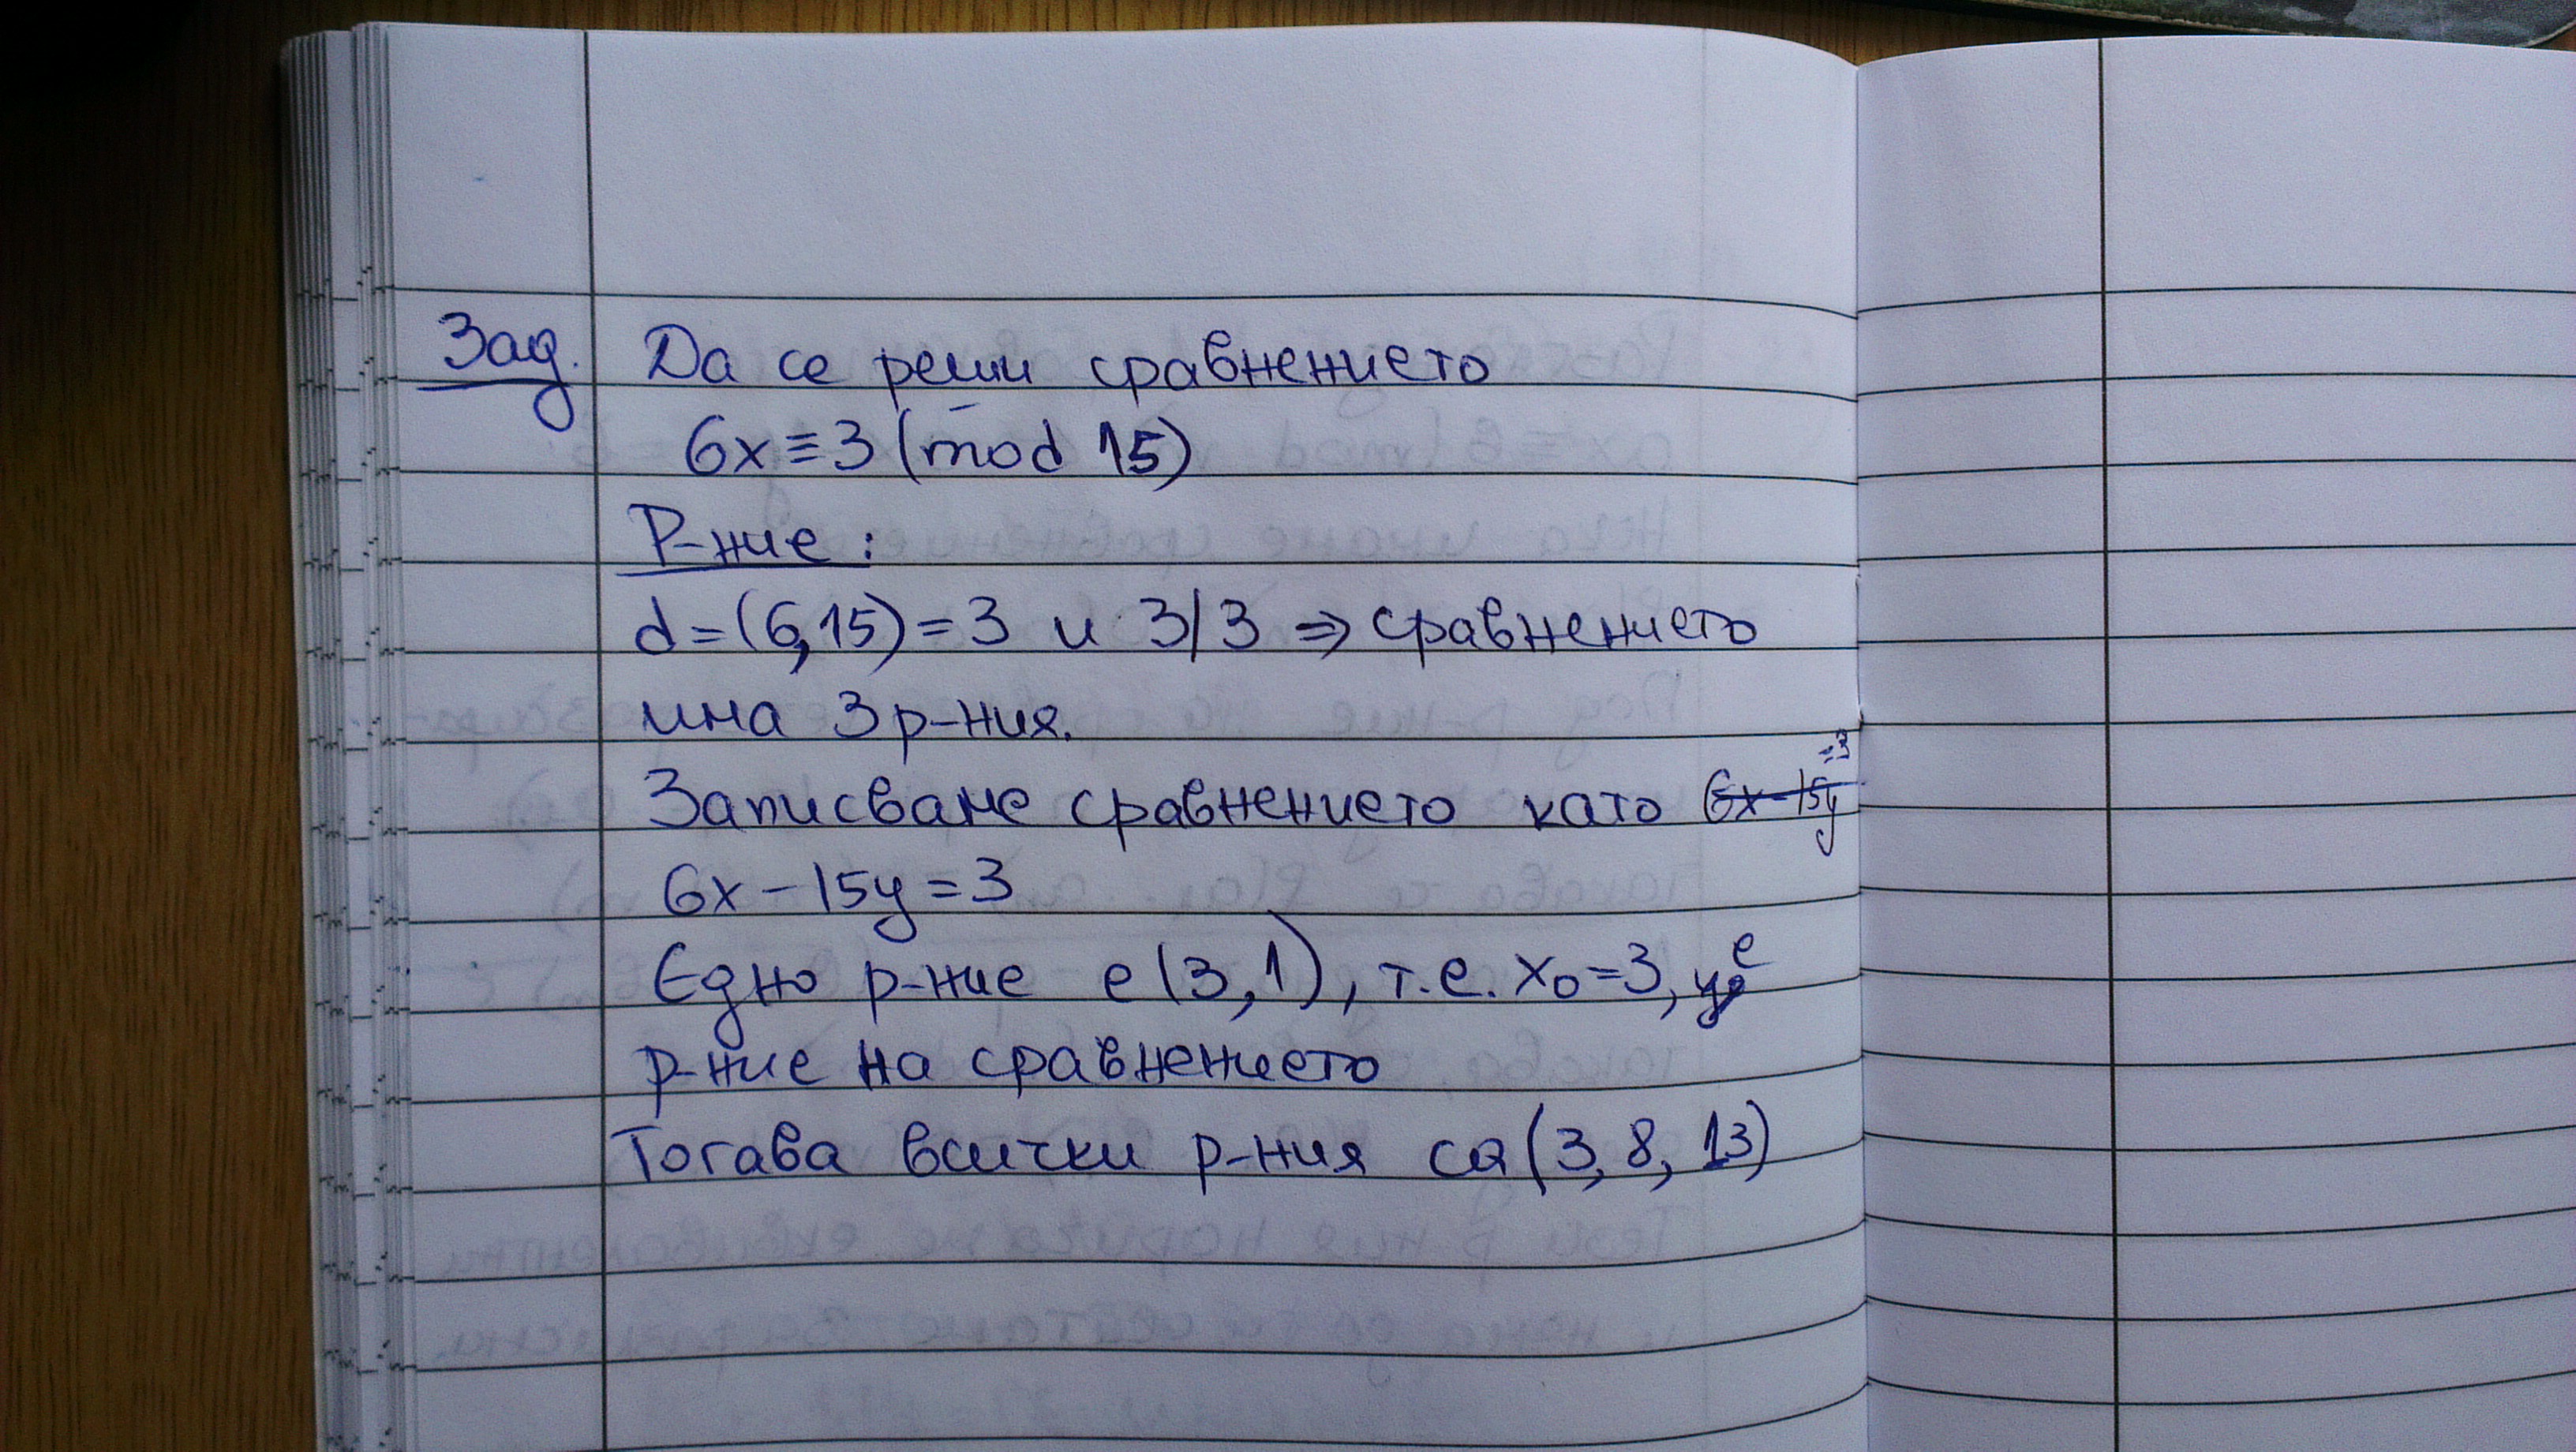 Зад. Да се реши сравнението
6x ≡ 3 (mod 15)
Р-ние:
d = (6,15) = 3 и 3/3 ⇒ сравнението
има 3 р-ния.
Записваме сравнението като 6x-15y =3
6x - 15y = 3
Едно р-ние е (3,1), т.е. x₀ = 3, е
р-ние на сравнението
Тогава всички р-ния са (3, 8, 13)